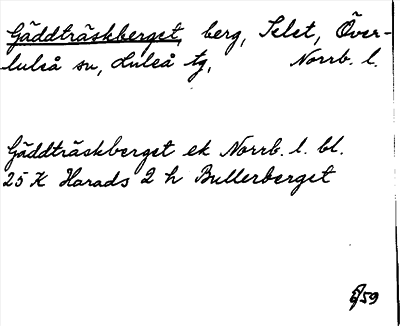 Gäddträskberget, berg, Selet, Över-
luleå sn, Luleå tg, Norrb. l.
Gäddträskberget ek Norrb. l. bl.
25 K Harads 2 h Bullerberget
59